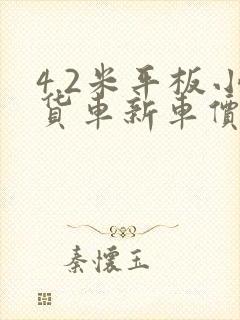 4.2米平板小
货车新车價
秦懷玉